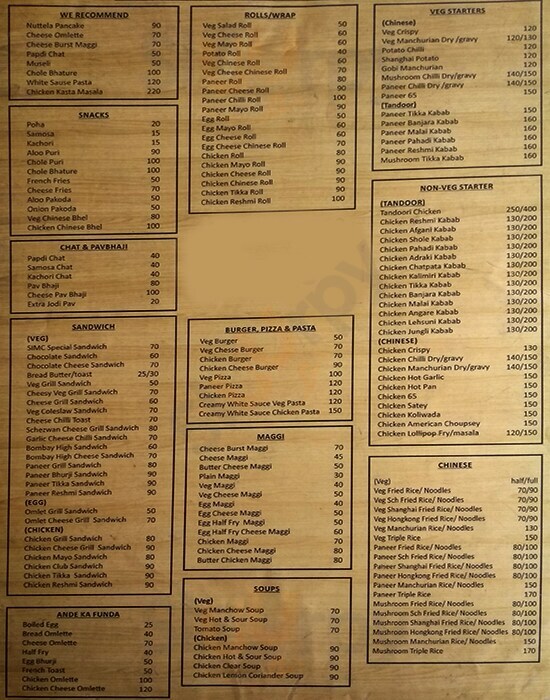 WE RECOMMEND
Nuttela Pancake 90
Cheese Omlette 70
Cheese Burst Maggi 70
Papdi Chat 50
Museli 50
Chole Bhature 100
White Sause Pasta 120
Chicken Kasta Masala 220
SNACKS
Poha 20
Samosa 15
Kachori 15
Aloo Puri 90
Chole Puri 100
Chole Bhature 100
French Fries 50
Cheese Fries 70
Aloo Pakoda 50
Onion Pakoda 50
Veg Chinese Bhel 80
Chicken Chinese Bhel 100
CHAT & PAVBHAJI
Papdi Chat 40
Samosa Chat 40
Kachori Chat 40
Pav Bhaji 80
Cheese Pav Bhaji 100
Extra Jodi Pav 20
SANDWICH
(VEG)
SIMC Special Sandwich 70
Chocolate Sandwich 60
Chocolate Cheese Sandwich 70
Bread Butter/toast 25/30
Veg Grill Sandwich 50
Cheesy Veg Grill Sandwich 70
Cheese Grill Sandwich 60
Veg Coleslaw Sandwich 70
Cheese Chilli Toast 70
Schezwan Cheese Grill Sandwich 80
Garlic Cheese Chilli Sandwich 70
Bombay High Sandwich 60
Bombay High Cheese Sandwich 70
Paneer Grill Sandwich 80
Paneer Bhurji Sandwich 90
Paneer Tikka Sandwich 90
Paneer Reshmi Sandwich 90
(EGG)
Omlet Grill Sandwich 50
Omlet Cheese Grill Sandwich 70
(CHICKEN)
Chicken Grill Sandwich 80
Chicken Cheese Grill Sandwich 90
Chicken Mayo Sandwich 80
Chicken Club Sandwich 90
Chicken Tikka Sandwich 90
Chicken Reshmi Sandwich 90
ANDE KA FUNDA
Boiled Egg 25
Bread Omlette 40
Cheese Omlette 70
Half Fry 40
Egg Bhurji 50
French Toast 50
Chicken Omlette 100
Chicken Cheese Omlette 120
ROLLS/WRAP
Veg Salad Roll 50
Veg Cheese Roll 60
Veg Mayo Roll 60
Potato Roll 40
Veg Chinese Roll 60
Veg Cheese Chinese Roll 70
Paneer Roll 80
Paneer Cheese Roll 90
Paneer Chilli Roll 100
Paneer Mayo Roll 90
Egg Roll 50
Egg Mayo Roll 60
Egg Cheese Roll 60
Egg Cheese Chinese Roll 70
Chicken Roll 80
Chicken Mayo Roll 90
Chicken Cheese Roll 90
Chicken Chinese Roll 90
Chicken Tikka Roll 90
Chicken Reshmi Roll 100
BURGER, PIZZA & PASTA
Veg Burger 50
Veg Chesse Burger 70
Chicken Burger 70
Chicken Cheese Burger 90
Veg Pizza 100
Paneer Pizza 120
Chicken Pizza 120
Creamy White Sauce Veg Pasta 120
Creamy White Sauce Chicken Pasta 150
MAGGI
Cheese Burst Maggi 70
Cheese Maggi 45
Butter Cheese Maggi 50
Plain Maggi 30
Veg Maggi 40
Veg Cheese Maggi 50
Egg Maggi 40
Egg Cheese Maggi 50
Egg Half Fry Maggi 50
Egg Half Fry Cheese Maggi 60
Chicken Maggi 70
Chicken Cheese Maggi 80
Butter Chicken Maggi 80
SOUPS
(Veg)
Veg Manchow Soup 70
Veg Hot & Sour Soup 70
Tomato Soup 70
(Chicken)
Chicken Manchow Soup 90
Chicken Hot & Sour Soup 90
Chicken Clear Soup 90
Chicken Lemon Coriander Soup 90
VEG STARTERS
(Chinese)
Veg Crispy 120
Veg Manchurian Dry /gravy 120/130
Potato Chilli 120
Shanghai Potato 120
Gobi Manchurian 120
Mushroom Chilli Dry/gravy 140/150
Paneer Chilli Dry /gravy 140/150
Paneer 65 150
(Tandoor)
Paneer Tikka Kabab 150
Paneer Banjara Kabab 160
Paneer Malai Kabab 160
Paneer Pahadi Kabab 160
Paneer Reshmi Kabab 160
Mushroom Tikka Kabab 160
NON-VEG STARTER
(TANDOOR)
Tandoori Chicken 250/400
Chicken Reshmi Kabab 130/200
Chicken Afgani Kabab 130/200
Chicken Shole Kabab 130/200
Chicken Pahadi Kabab 130/200
Chicken Adraki Kabab 130/200
Chicken Chatpata Kabab 130/200
Chicken Kalimiri Kabab 130/200
Chicken Tikka Kabab 130/200
Chicken Banjara Kabab 130/200
Chicken Malai Kabab 130/200
Chicken Angare Kabab 130/200
Chicken Lehsuni Kabab 130/200
Chicken Jungli Kabab 130/200
(CHINESE)
Chicken Crispy 130
Chicken Chilli Dry/gravy 140/150
Chicken Manchurian Dry/gravy 140/150
Chicken Hot Garlic 150
Chicken Hot Pan 150
Chicken 65 150
Chicken Satey 150
Chicken Koliwada 150
Chicken American Choupsey 150
Chicken Lollipop Fry/masala 120/150
CHINESE
(Veg) half/full
Veg Fried Rice/ Noodles 70/90
Veg Sch Fried Rice/ Noodles 70/90
Veg Shanghai Fried Rice/ Noodles 70/90
Veg Hongkong Fried Rice/ Noodles 70/90
Veg Manchurian Rice/ Noodles 130
Veg Triple Rice 150
Paneer Fried Rice/ Noodles 80/100
Paneer Sch Fried Rice/ Noodles 80/100
Paneer Shanghai Fried Rice/ Noodles 80/100
Paneer Hongkong Fried Rice/ Noodles 80/100
Paneer Manchurian Rice/ Noodles 150
Paneer Triple Rice 170
Mushroom Fried Rice/ Noodles 80/100
Mushroom Sch Fried Rice/ Noodles 80/100
Mushroom Shanghai Fried Rice/ Noodles 80/100
Mushroom Hongkong Fried Rice/ Noodles 80/100
Mushroom Manchurian Rice/ Noodles 150
Mushroom Triple Rice 170